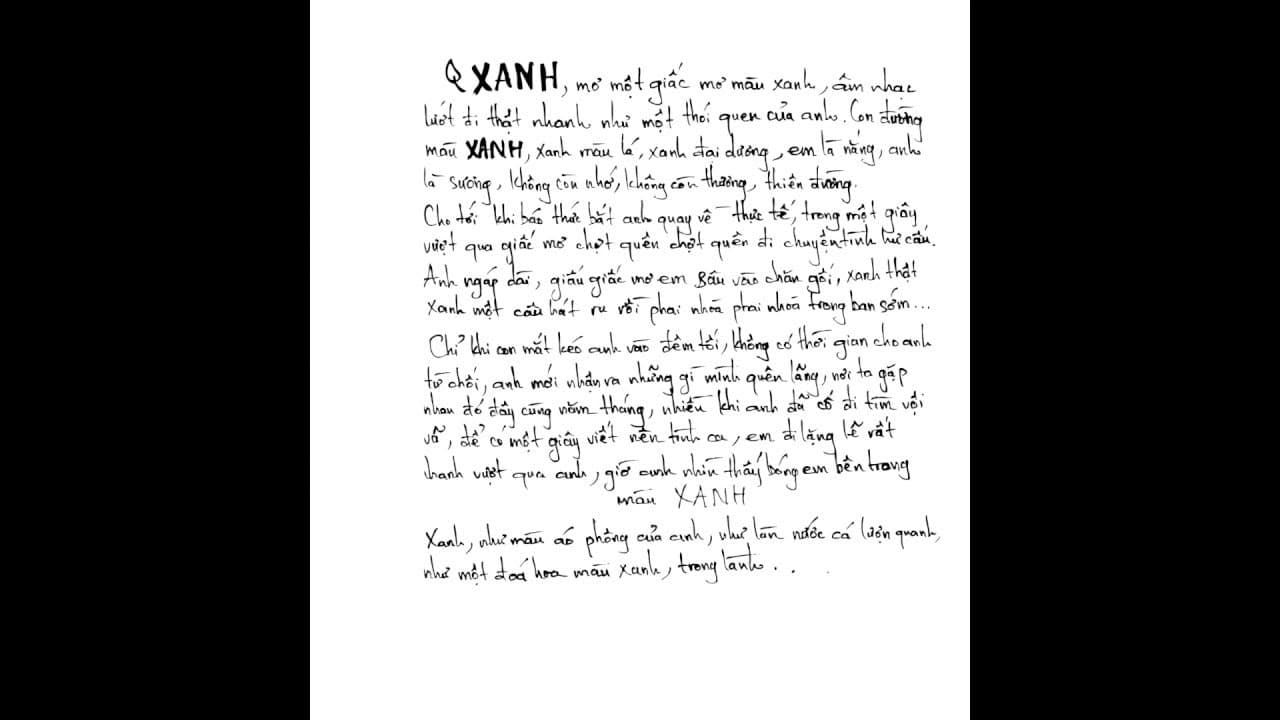 Q XANH, mơ một giấc mơ màu xanh, âm nhạc
lướt đi thật nhanh như một thói quen của anh. Con đường
màu XANH, xanh màu lá, xanh đại dương, em là nắng, anh
là sương, không còn nhớ, không còn thương, thiên đường.
Cho tới khi báo thức bắt anh quay về thực tế, trong một giây
vượt qua giấc mơ chợt quên chợt quên đi chuyện tình hư cấu.
Anh ngáp dài, giấu giấc mơ em Bấu vào chăn gối, xanh thật
xanh một câu hát ru rồi phai nhoà phai nhoà trong ban sớm...
Chỉ khi con mắt kéo anh vào đêm tối, không có thời gian cho anh
từ chối, anh mới nhận ra những gì mình quên lãng, nơi ta gặp
nhau đó đây cùng năm tháng, nhiều khi anh đã cố đi tìm vội
vã, để có một giây viết nên tình ca, em đi lặng lẽ rất
nhanh vượt qua anh, giờ anh nhìn thấy bóng em bên trong
màu XANH
Xanh, như màu áo phông của anh, như làn nước cá lượn quanh,
như một đoá hoa màu xanh, trong lành...